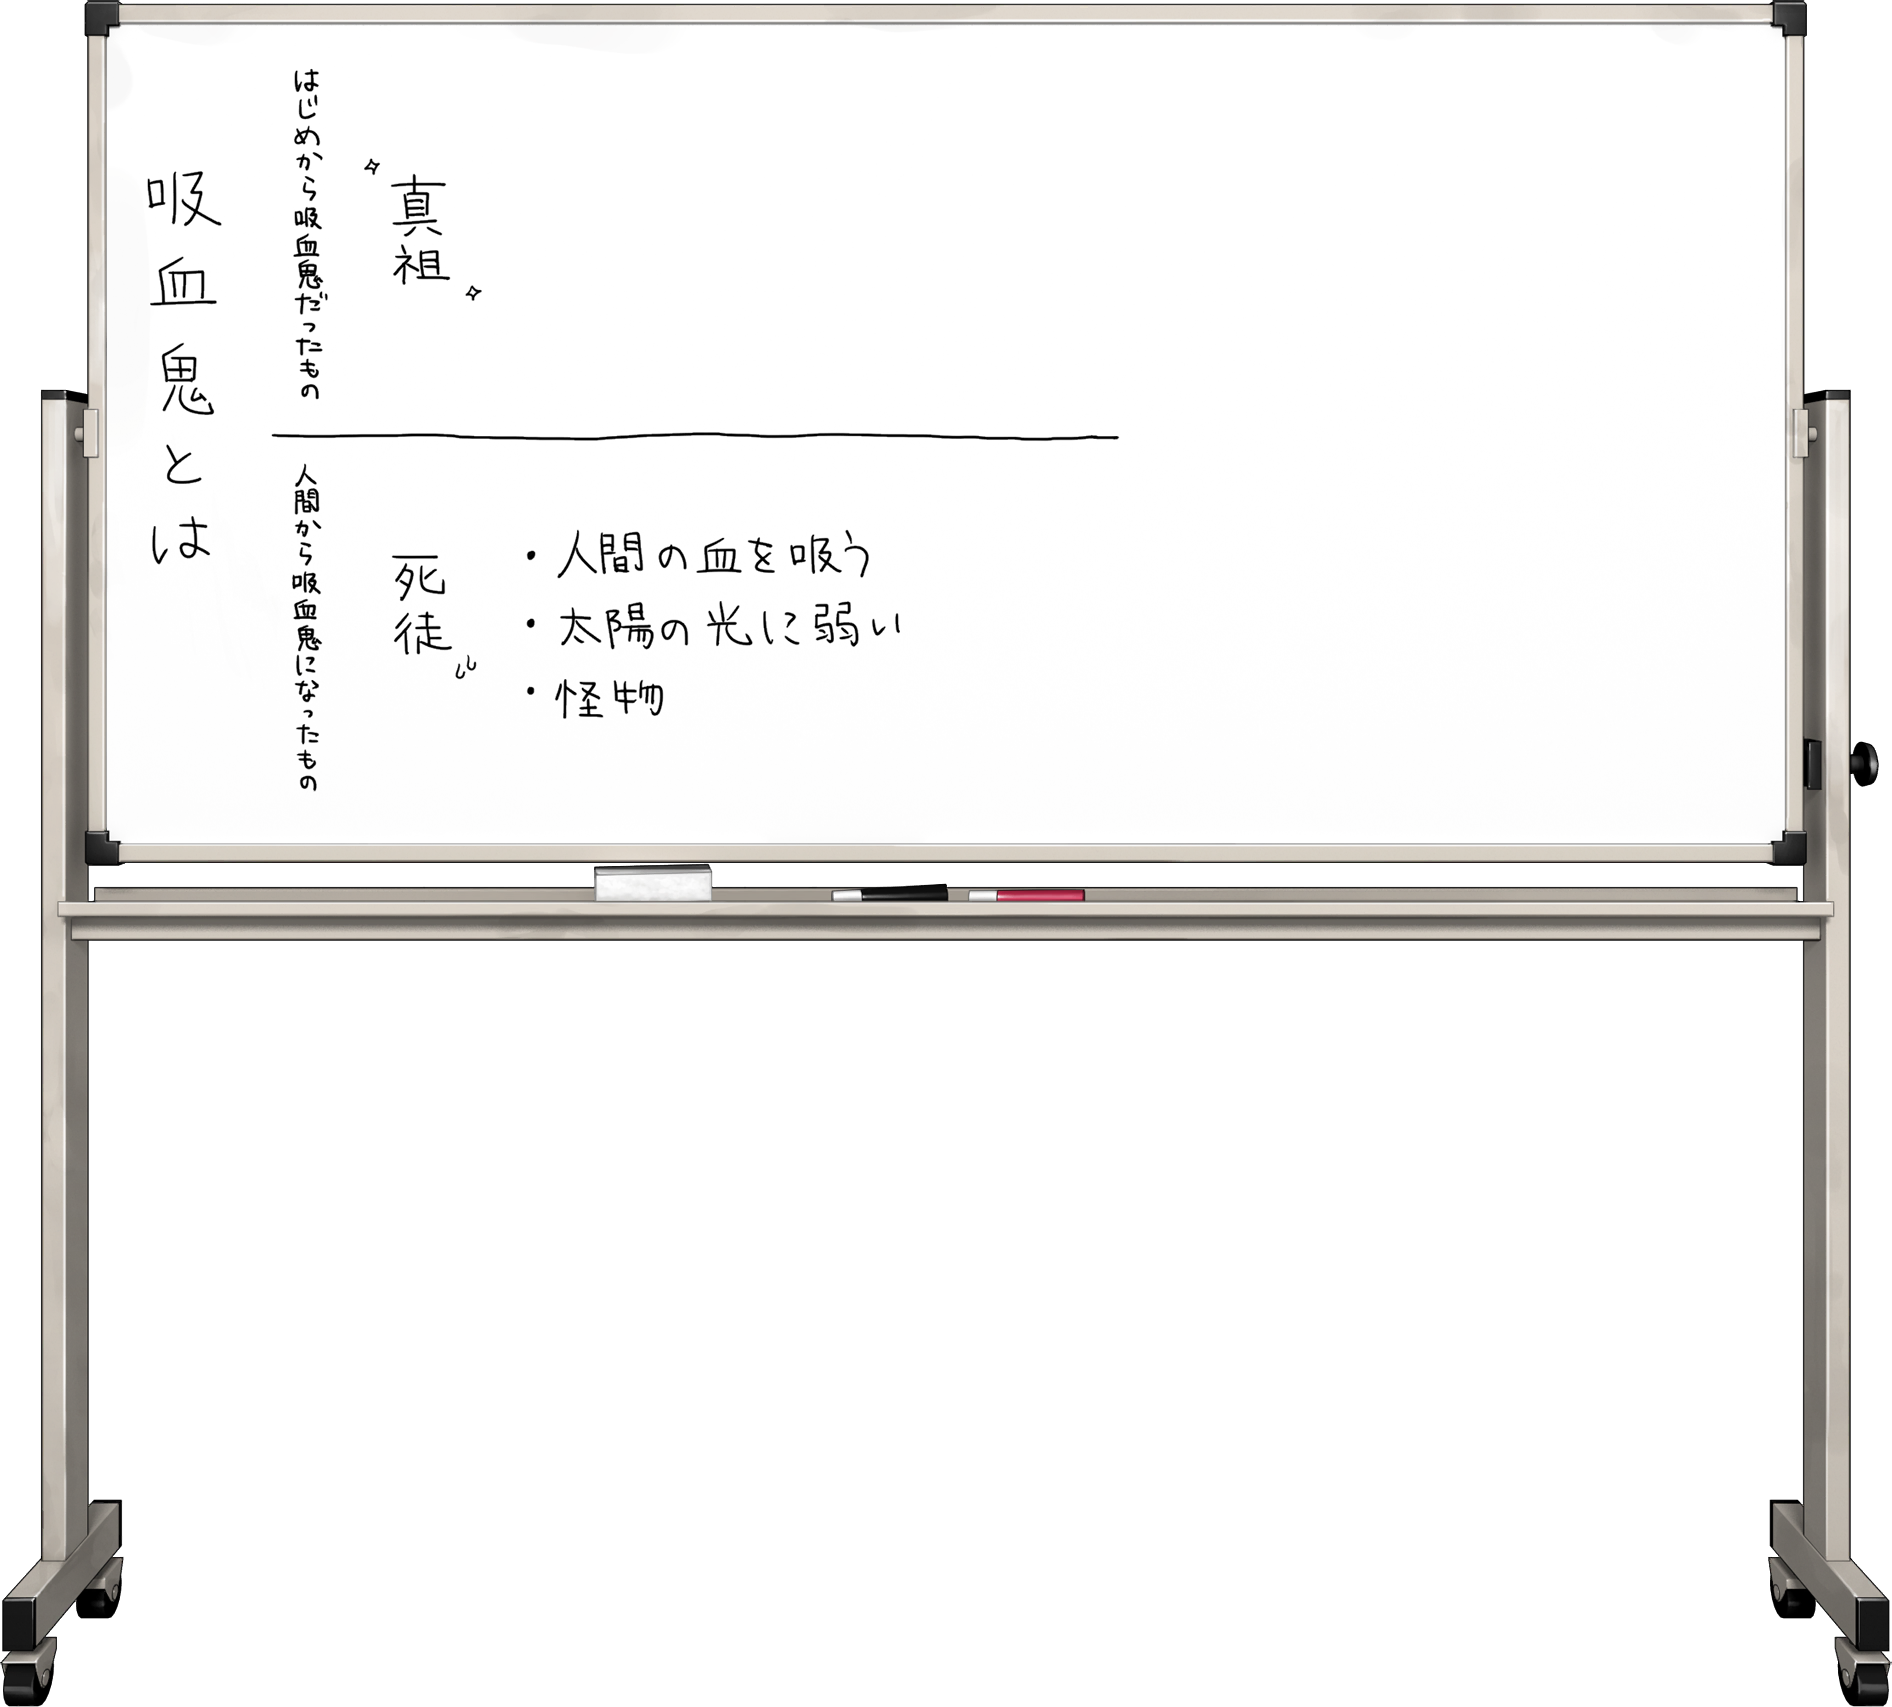 吸血鬼とは
はじめから吸血鬼だったもの
真祖
人間から吸血鬼になったもの
死徒
・人間の血を吸う
・太陽の光に弱い
・怪物